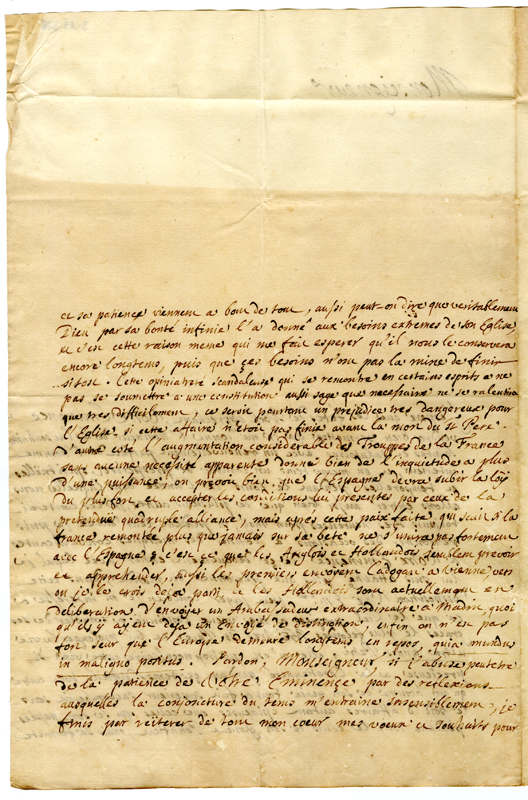 et sa patience viennent a bout de tout, aussi peut-on dire que veritablement
Dieu par sa bonté infinie l'a donné aux besoins extrêmes de son Eglise
et c'est cette raison meme qui me fait esperer qu'il nous le conservera
encore longtems, puis que ces besoins n'ont pas la mine de finir
sitost. Cette opiniatreté scandaleuse qui se rencontre en certains esprits a ne
pas se soumettre a une constitution aussi sage que necessaire ne se ralentira
que tres difficilement, ce seroit pourtant un prejudice tres dangereux pour
l'Eglise si cette affaire n'étoit pas finie avant la mort du St Pere.
D'autre coté l'augmentation considerable des Trouppes de la France
sans aucune necessité apparente donne bien de l'inquietude a plus
d'une puissance, on prevoit bien que l'Espagne devra subir la loÿ
du plus fort et accepter les conditions luy presentés par ceux de la
pretendue quadruple alliance, mais aprés cette paix faite qui scait si la
france remontée plus que jamais sur sa bete, ne s'unira pas fortement
avec l'Espagne, c'est ce que les Anglois et Hollandois semblent prevoir
et apprehender, aussi les premiers envoïent Cadogan a Vienne vers
ou je le crois deja parti, et les Hollandois sont actuellement en
deliberation d'envoÿer un Ambassadeur extraordinaire a Madrit, quoi
qu'ils y aÿent deja un Envoié de distinction, enfin on n'est pas
fort seur que l'Europe demeure longtems en repos, quia mundus
in maligno positus. Pardon, Monseigneur, si j'abuse peutetre
de la patience de Votre Eminence par des reflexions
auxquelles la conjoncture du tems m'entraine insensiblement, je
finis par reiterer de tout mon coeur mes voeux et souhaits pour